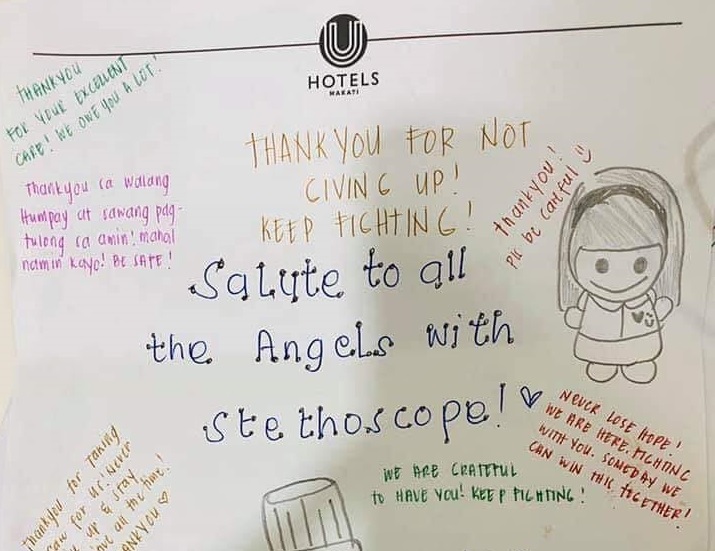 U
HOTELS
MAKATI
THANKYOU
FOR YOUR EXCELLENT
CARE! WE OWE YOU A LOT!
THANKYOU FOR NOT
GIVING UP!
KEEP FIGHTING!
Thankyou sa walang
Humpay at sawang pag-
tulong sa amin! mahal
namin kayo! BE SAFE!
thankyou!
plz be careful
Salute to all
the Angels with
stethoscope!
NEVER LOSE HOPE!
WE ARE HERE. FIGHTING
WITH YOU. SOMEDAY WE
CAN WIN THIS TOGETHER!
WE ARE GRATEFUL
to HAVE YOU! KEEP FIGHTING!
Thankyou for taking
for us. Never
up & stay
all the time!
THANKYOU